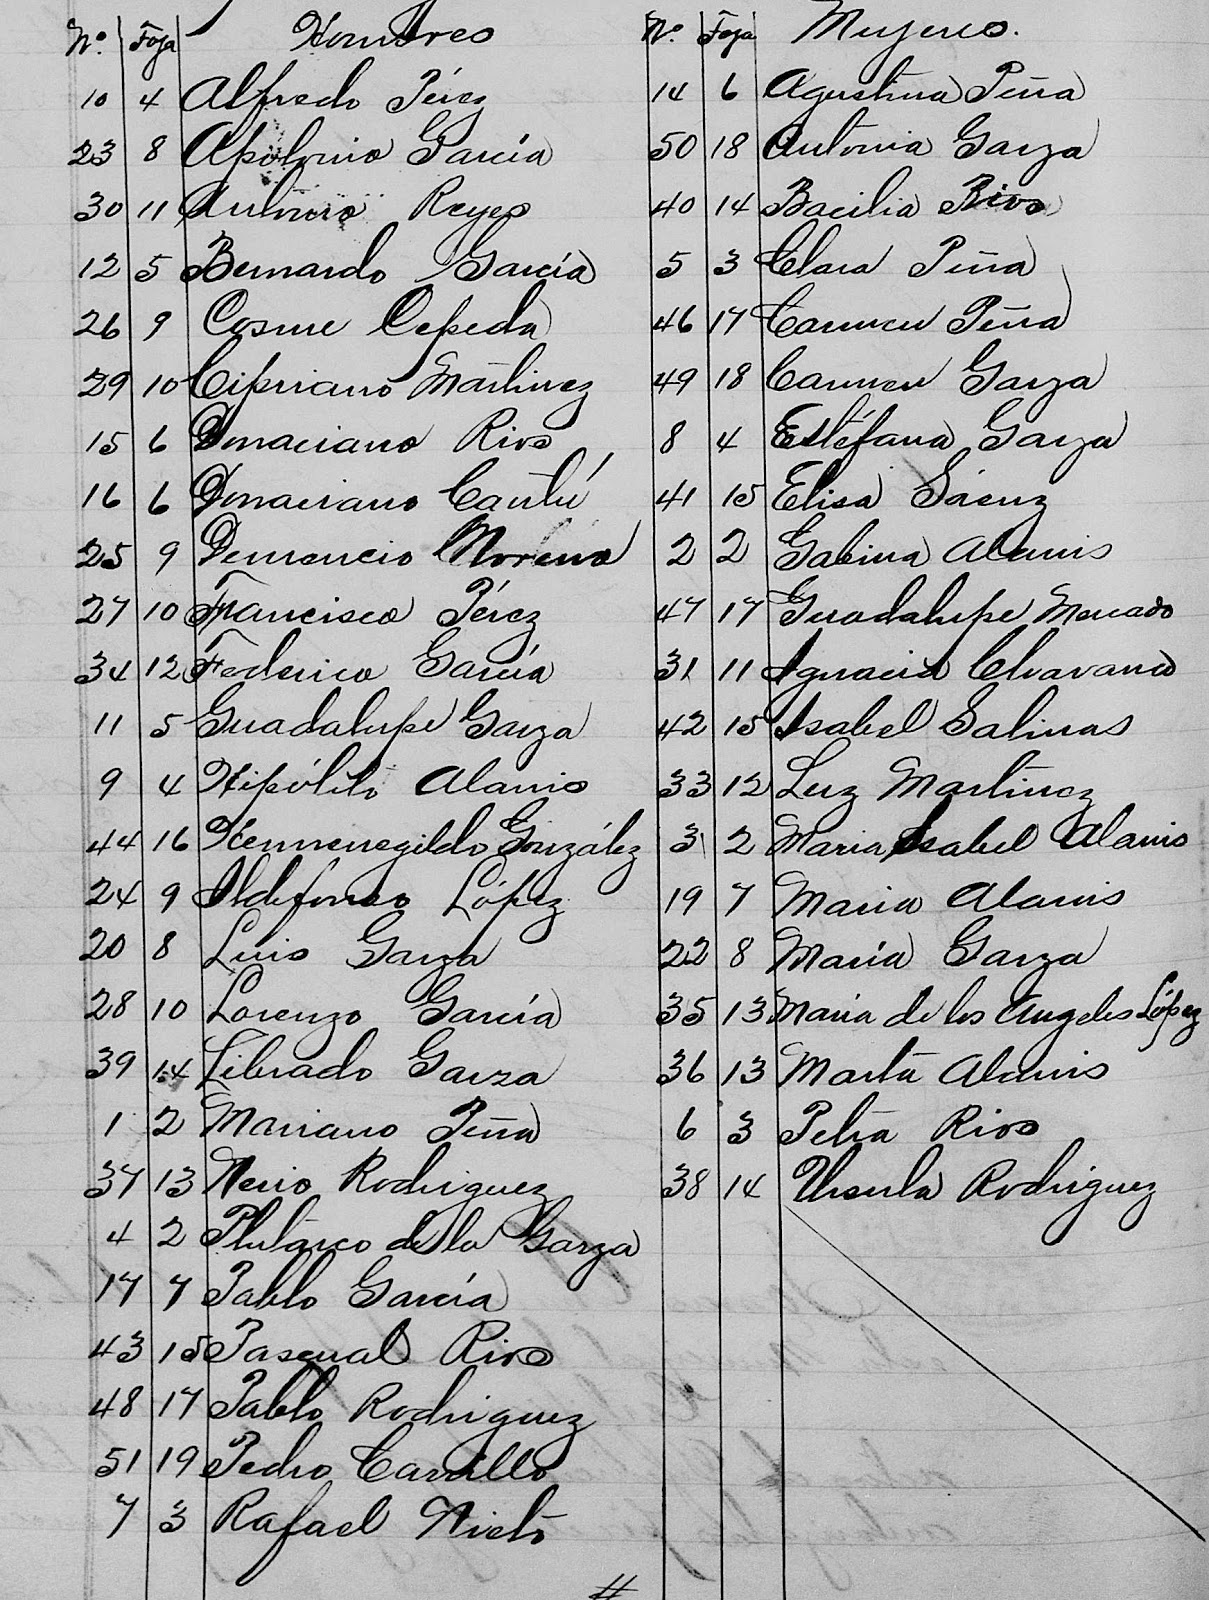 No. Foja Hombres
10 4 Alfredo Pérez
23 8 Apolonio García
30 11 Antonio Reyes
12 5 Bernardo García
26 9 Cosme Cepeda
29 10 Cipriano Martinez
15 6 Donaciano Rios
16 6 Donaciano Cantú
25 9 Demencio Moreno
27 10 Francisco Pérez
34 12 Federico García
11 5 Guadalupe Garza
9 4 Hipólito Alanis
44 16 Hermenegildo González
24 9 Ildefonso López
20 8 Luis Garza
28 10 Lorenzo García
39 14 Librado Garza
1 2 Mariano Peña
37 13 Nerio Rodriguez
4 2 Plutarco de la Garza
17 7 Pablo García
43 15 Pascual Rios
48 17 Pablo Rodriguez
51 19 Pedro Carrillo
7 3 Rafael Nieto
No. Foja Mujeres.
14 6 Agustina Peña
50 18 Antonia Garza
40 14 Bacilia Rios
5 3 Clara Peña
46 17 Carmen Peña
49 18 Carmen Garza
8 4 Estéfana Garza
41 15 Elisa Sáenz
2 2 Gabina Alanis
47 17 Guadalupe Mercado
31 11 Ignacia
42 15 Isabel Salinas
33 12 Luz Martinez
3 2 Maria Isabel Alanis
19 7 Maria Alanis
22 8 María Garza
35 13 María de los Angeles López
36 13 Marta Alanis
6 3 Petra Rios
38 14 Ursula Rodriguez
#